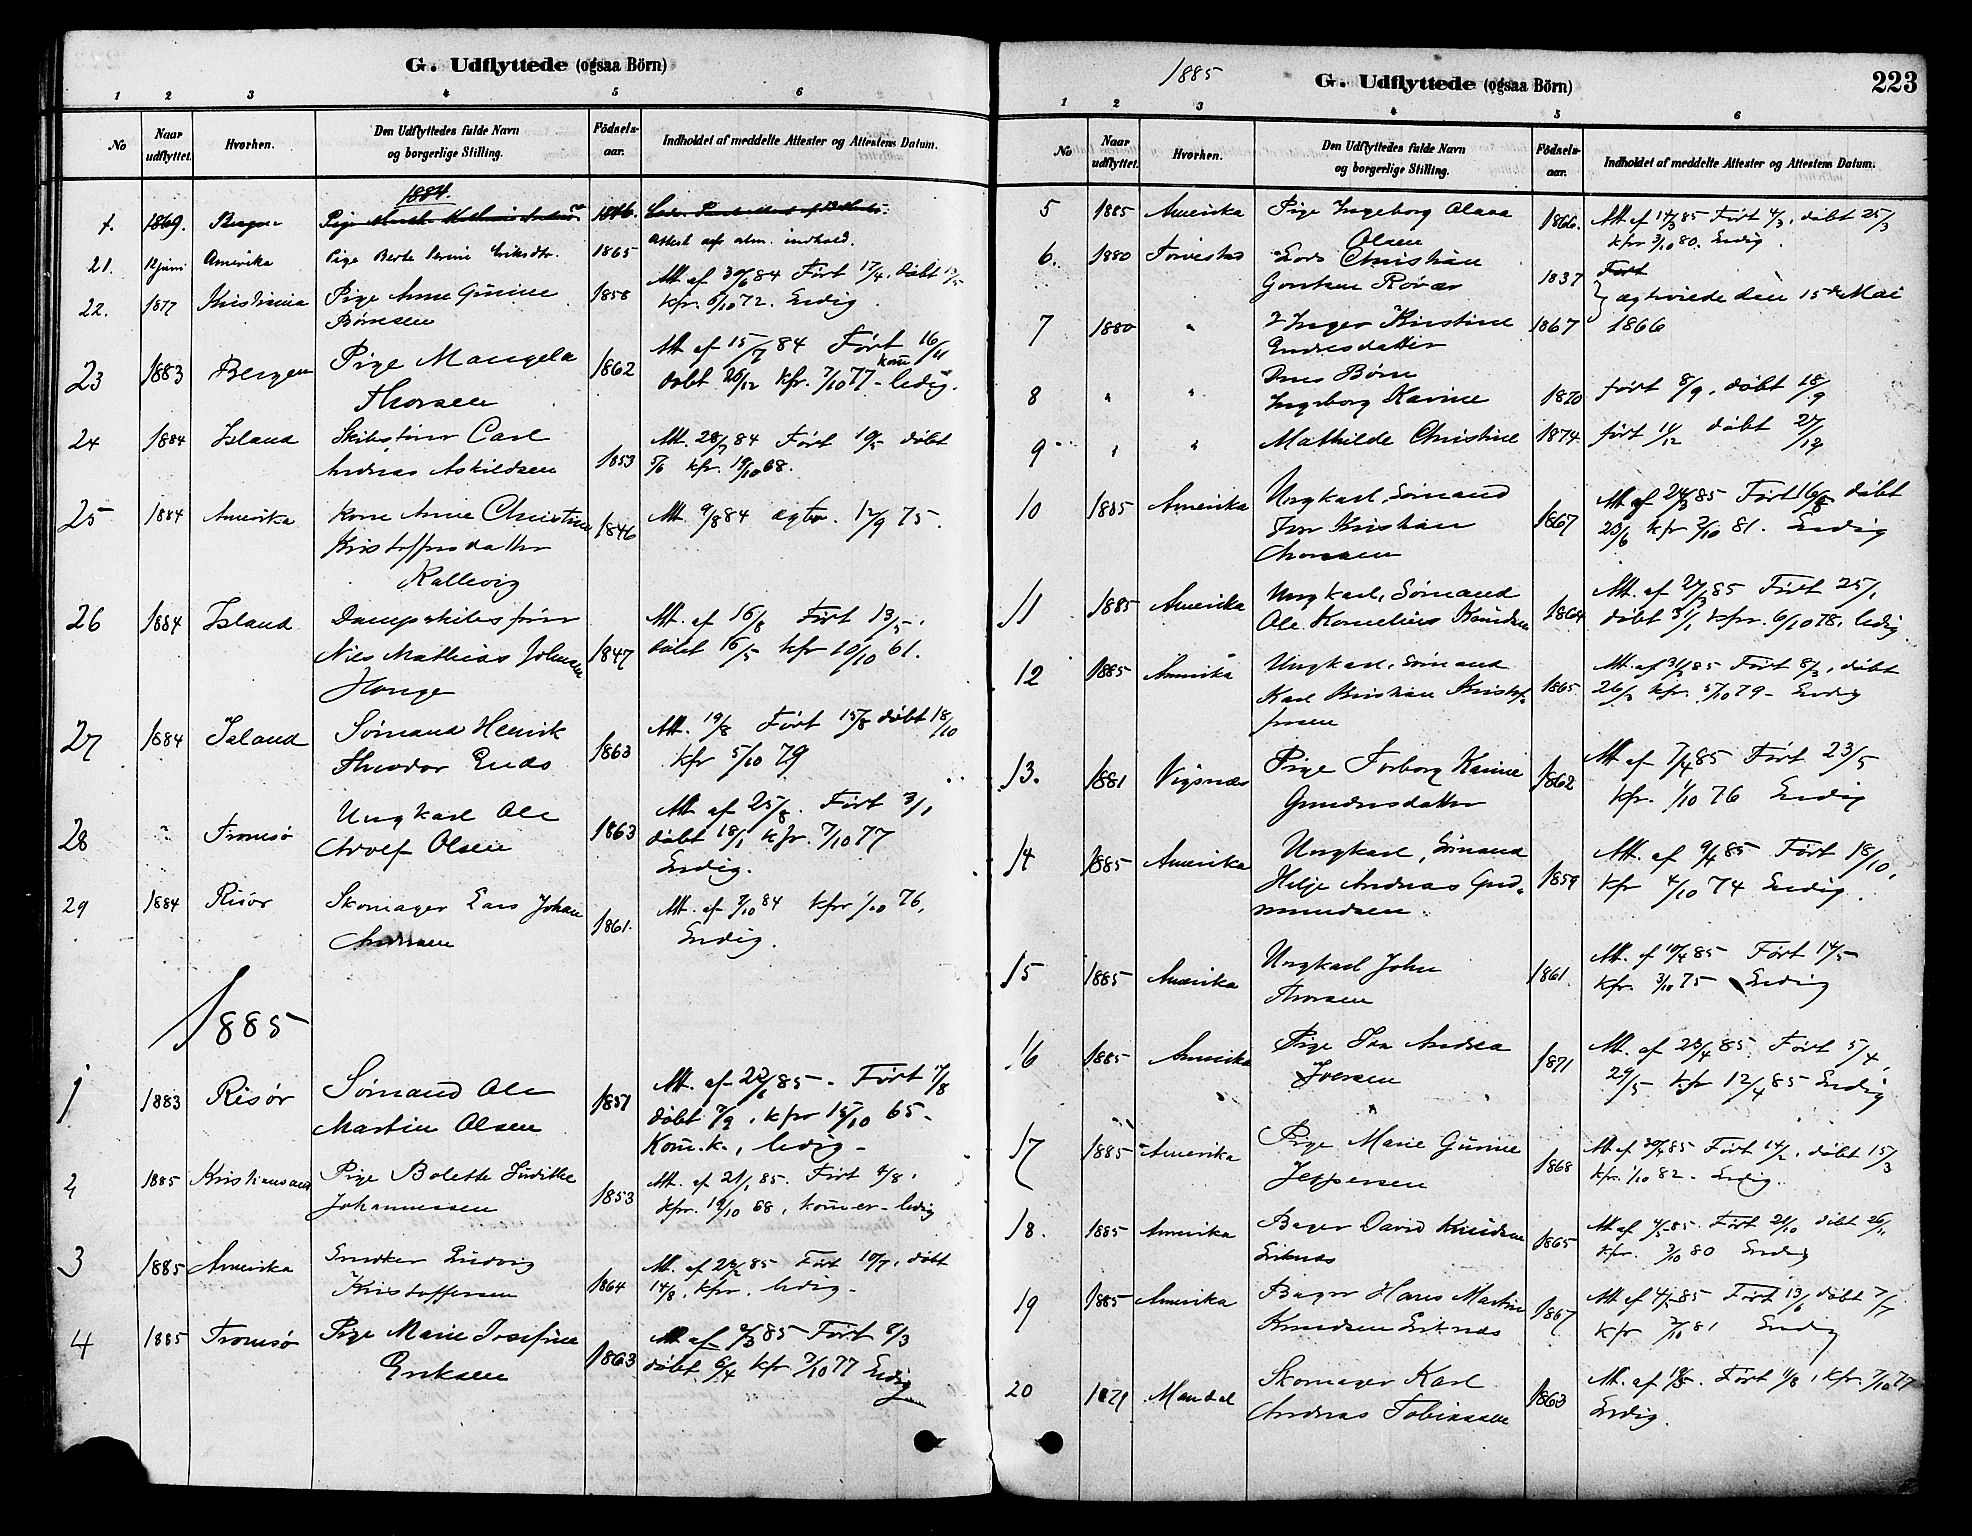 G. Udflyttede (ogsaa Börn)
1 2 3 4 5 6
No
Naar udflyttet.
Hvorhen.
Den Udflyttedes fulde Navn og borgerlige Stilling.
Födsels-aar.
Indholdet af meddelte Attester og Attestens Datum.
1884
1869. Bergen
Attest af alm. indhold.
21. 12 juni Amerika Pige Berte Serine Eriksdtr. 1865
22. 1877 Kristiania Pige Anne Gurine 1858 Att. af 30/6 84 Født 17/4. døbt
Børnesen kfr. 6/10 72. Ledig.
23 1883 Bergen Pige Mangela 1862 Att af 15/7 84 Født 16/11
Thorsen døbt 26/12 kfr. 7/10 77 - ledig.
24 1884 Island Skibsfører Carl Att. 28/7 84 Født 10/5 døbt
Andreas Askildsen 1853 5/6 kfr. 19/10 68.
25 1884 Amerika Kone Anne Christine 1846 Att. 9/8 84 ægtev. 12/9 75.
Kristoffersdatter
Kallevig
26 1884 Island Dampskibsfører Att. af 16/8 Født 13/5.
Nils Mathias Johnsen 1847 døbt 16/5 kfr 10/10 61.
Hauge
27 1884 Island Sømand Henrik 1863 Att. 19/8 Født 15/8 døbt 18/10
Theodor Ends kfr 5/10 79
28 " Tromsø Ungkarl Ole 1863 Att af 25/8. Født 3/1
Adolf Olsen døbt 18/1 kfr. 7/10 77
Ledig.
29 1884 Risør Skomager Lars Johan 1861. Att. af 3/10 84 kfr 1/10 76,
Andersen Ledig.
1885
1 1883 Risør Sømand Ole 1851 Att. af 22/1 85. Født 7/8
Martin Olsen døbt 7/9, kfr 15/10 65.
Kom.k., ledig
2 1885 Kristiansand Pige Bolette Fredrikke Att. af 21/1 85. Født 4/8.
Johannessen 1853 kfr. 19/10 68, komer - ledig
3 1885 Amerika Snedker Ludvig Att. af 23/2 85 Født 10/7. døbt
Kristoffersen 1864 14/8. kfr. ledig
4 1885 Tromsø Pige Marie Josefine Att af 2/3 85 Født 8/3
Eriksen 1863 døbt 6/4 kfr. 7/10 77 Ledig
1885
G. Udflyttede (ogsaa Börn)
223
1 2 3 4 5 6
No
Naar udflyttet.
Hvorhen.
Den Udflyttedes fulde Navn og borgerlige Stilling.
Födsels-aar.
Indholdet af meddelte Attester og Attestens Datum.
5 1885 Amerika Pige Ingeborg Olava 1866. Att af 14/3 85 Født 4/3, døbt 25/3
Olsen kfr 3/10 80. Ledig.
6. 1880 Torvestad Lars Christian 1837 Født
Gontsen Røvær ægteviede den 15de Mai
7 1880 " Inger Kristine 1867 1866
Endresdatter
Deres Børn
8 " " Ingeborg Karine 1870 født 8/9, døbt 18/9
9 " " Mathilde Christine 1874 født 14/12 døbt 27/12
10 1885 Amerika Ungkarl, Sømand Att af 24/3 85 Født 16/8 døbt
Iver Kristian 1867 20/6 kfr 2/10 81. Ledig
Thorsen
11 1885 Amerika Ungkarl, Sømand Att. af 27/3 85 Født 25/1
Ole Kornelius Knudsen 1864 døbt 31/1 kfr. 6/10 78, ledig
12 1885 Amerika Ungkarl, Sømand Att. af 31/3 85 Født 8/3, døbt
Karl Kristian Kristof- 1865. 26/3 kfr. 5/10 79 - Ledig
fersen
13. 1881 Vigsnæs Pige Torborg Karine 1862 Att af 7/4 85 Født 23/5
Gundersdatter kfr. 1/10 76 Ledig
14 1885 Amerika Ungkarl, Sømand Att. af 9/4 85 Født 18/10,
Helje Andreas Gud- 1859 kfr 4/10 74 Ledig.
mundsen
15 1885 Amerika Ungkarl John 1861. Att. af 10/4 85 Født 14/5
Thorsen kfr. 3/10 75 Ledig
16 1885 Amerika Pige Ida Andrea 1871 Att. af 23/4 85. Født 5/4,
Iversen 29/5 kfr 12/4 85 Ledig
17 1885 Amerika Pige Marie Gurine 1868 Att af 30/4 85 Født 14/2, døbt 15/3
Jeppesen kfr. 1/10 82 - Ledig.
18. 1885 Amerika Bager David Knudsen 1865 Att af 4/5 85. Født 21/10 døbt 26/1
Eiknæs kfr. 3/10 80 Ledig
19 1885 Amerika Bager Hans Martin 1867 Att af 4/5 85 Født 13/6 døbt 7/7
Knudsen Eiknæs kfr 2/10 81 Ledig
20 1879 Mandal Skomager Karl 1863 Født 1/8, kfr. 7/10 77
Andreas Tobiassen Ledig.